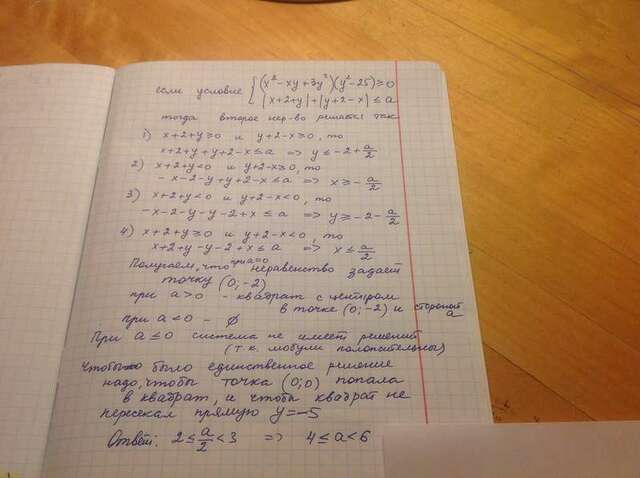 если условие { (x² - xy + 3y²)(y² - 25) ≥ 0
|x+2+y| + |y+2-x| ≤ a
тогда второе нер-во решать так
1) x+2+y ≥ 0 и y+2-x ≥ 0, то
x+2+y+y+2-x ≤ a => y ≤ -2 + a/2
2) x+2+y < 0 и y+2-x ≥ 0, то
-x-2-y+y+2-x ≤ a => x ≥ -a/2
3) x+2+y < 0 и y+2-x < 0, то
-x-2-y-y-2+x ≤ a => y ≥ -2 - a/2
4) x+2+y ≥ 0 и y+2-x < 0, то
x+2+y-y-2+x ≤ a => x ≤ a/2
Получаем, что при a=0 неравенство задаёт
точку (0; -2)
при a > 0 - квадрат с центром
в точке (0; -2) и стороной a
при a < 0 - ∅
При a ≤ 0 система не имеет решений
(т.к. модули положительны)
Чтобы было единственное решение
надо, чтобы точка (0; 0) попала
в квадрат, и чтобы квадрат не
пересекал прямую y = -5
Ответ: 2 ≤ a/2 < 3 => 4 ≤ a < 6